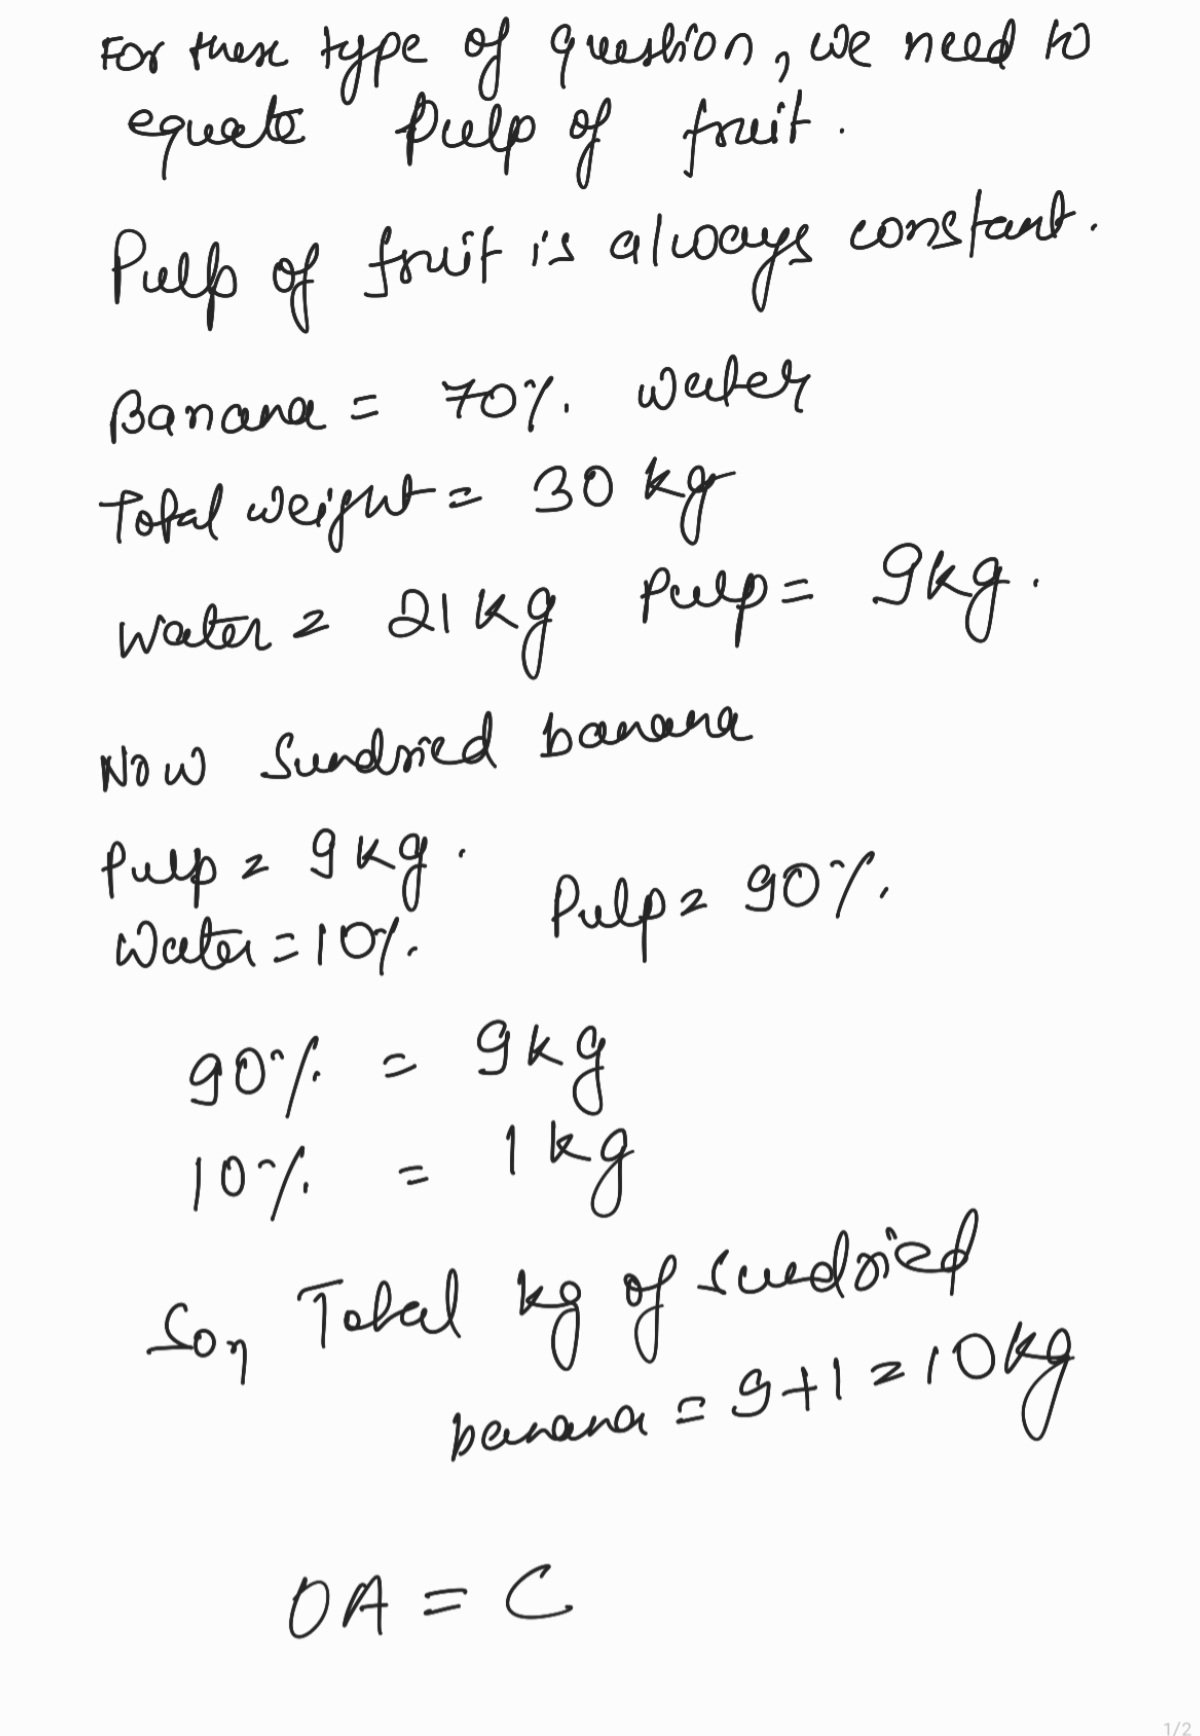 For these type of question, we need to
equate Pulp of fruit.
Pulp of fruit is always constant.
Banana = 70% water
Total weight = 30 kg
water = 21 kg Pulp = 9kg.
Now Sundried banana
Pulp = 9 kg.
Water = 10% Pulp = 90%.
90% = 9kg
10% = 1 kg
So, Total kg of sundried
banana = 9+1 = 10kg
OA = C
1/2